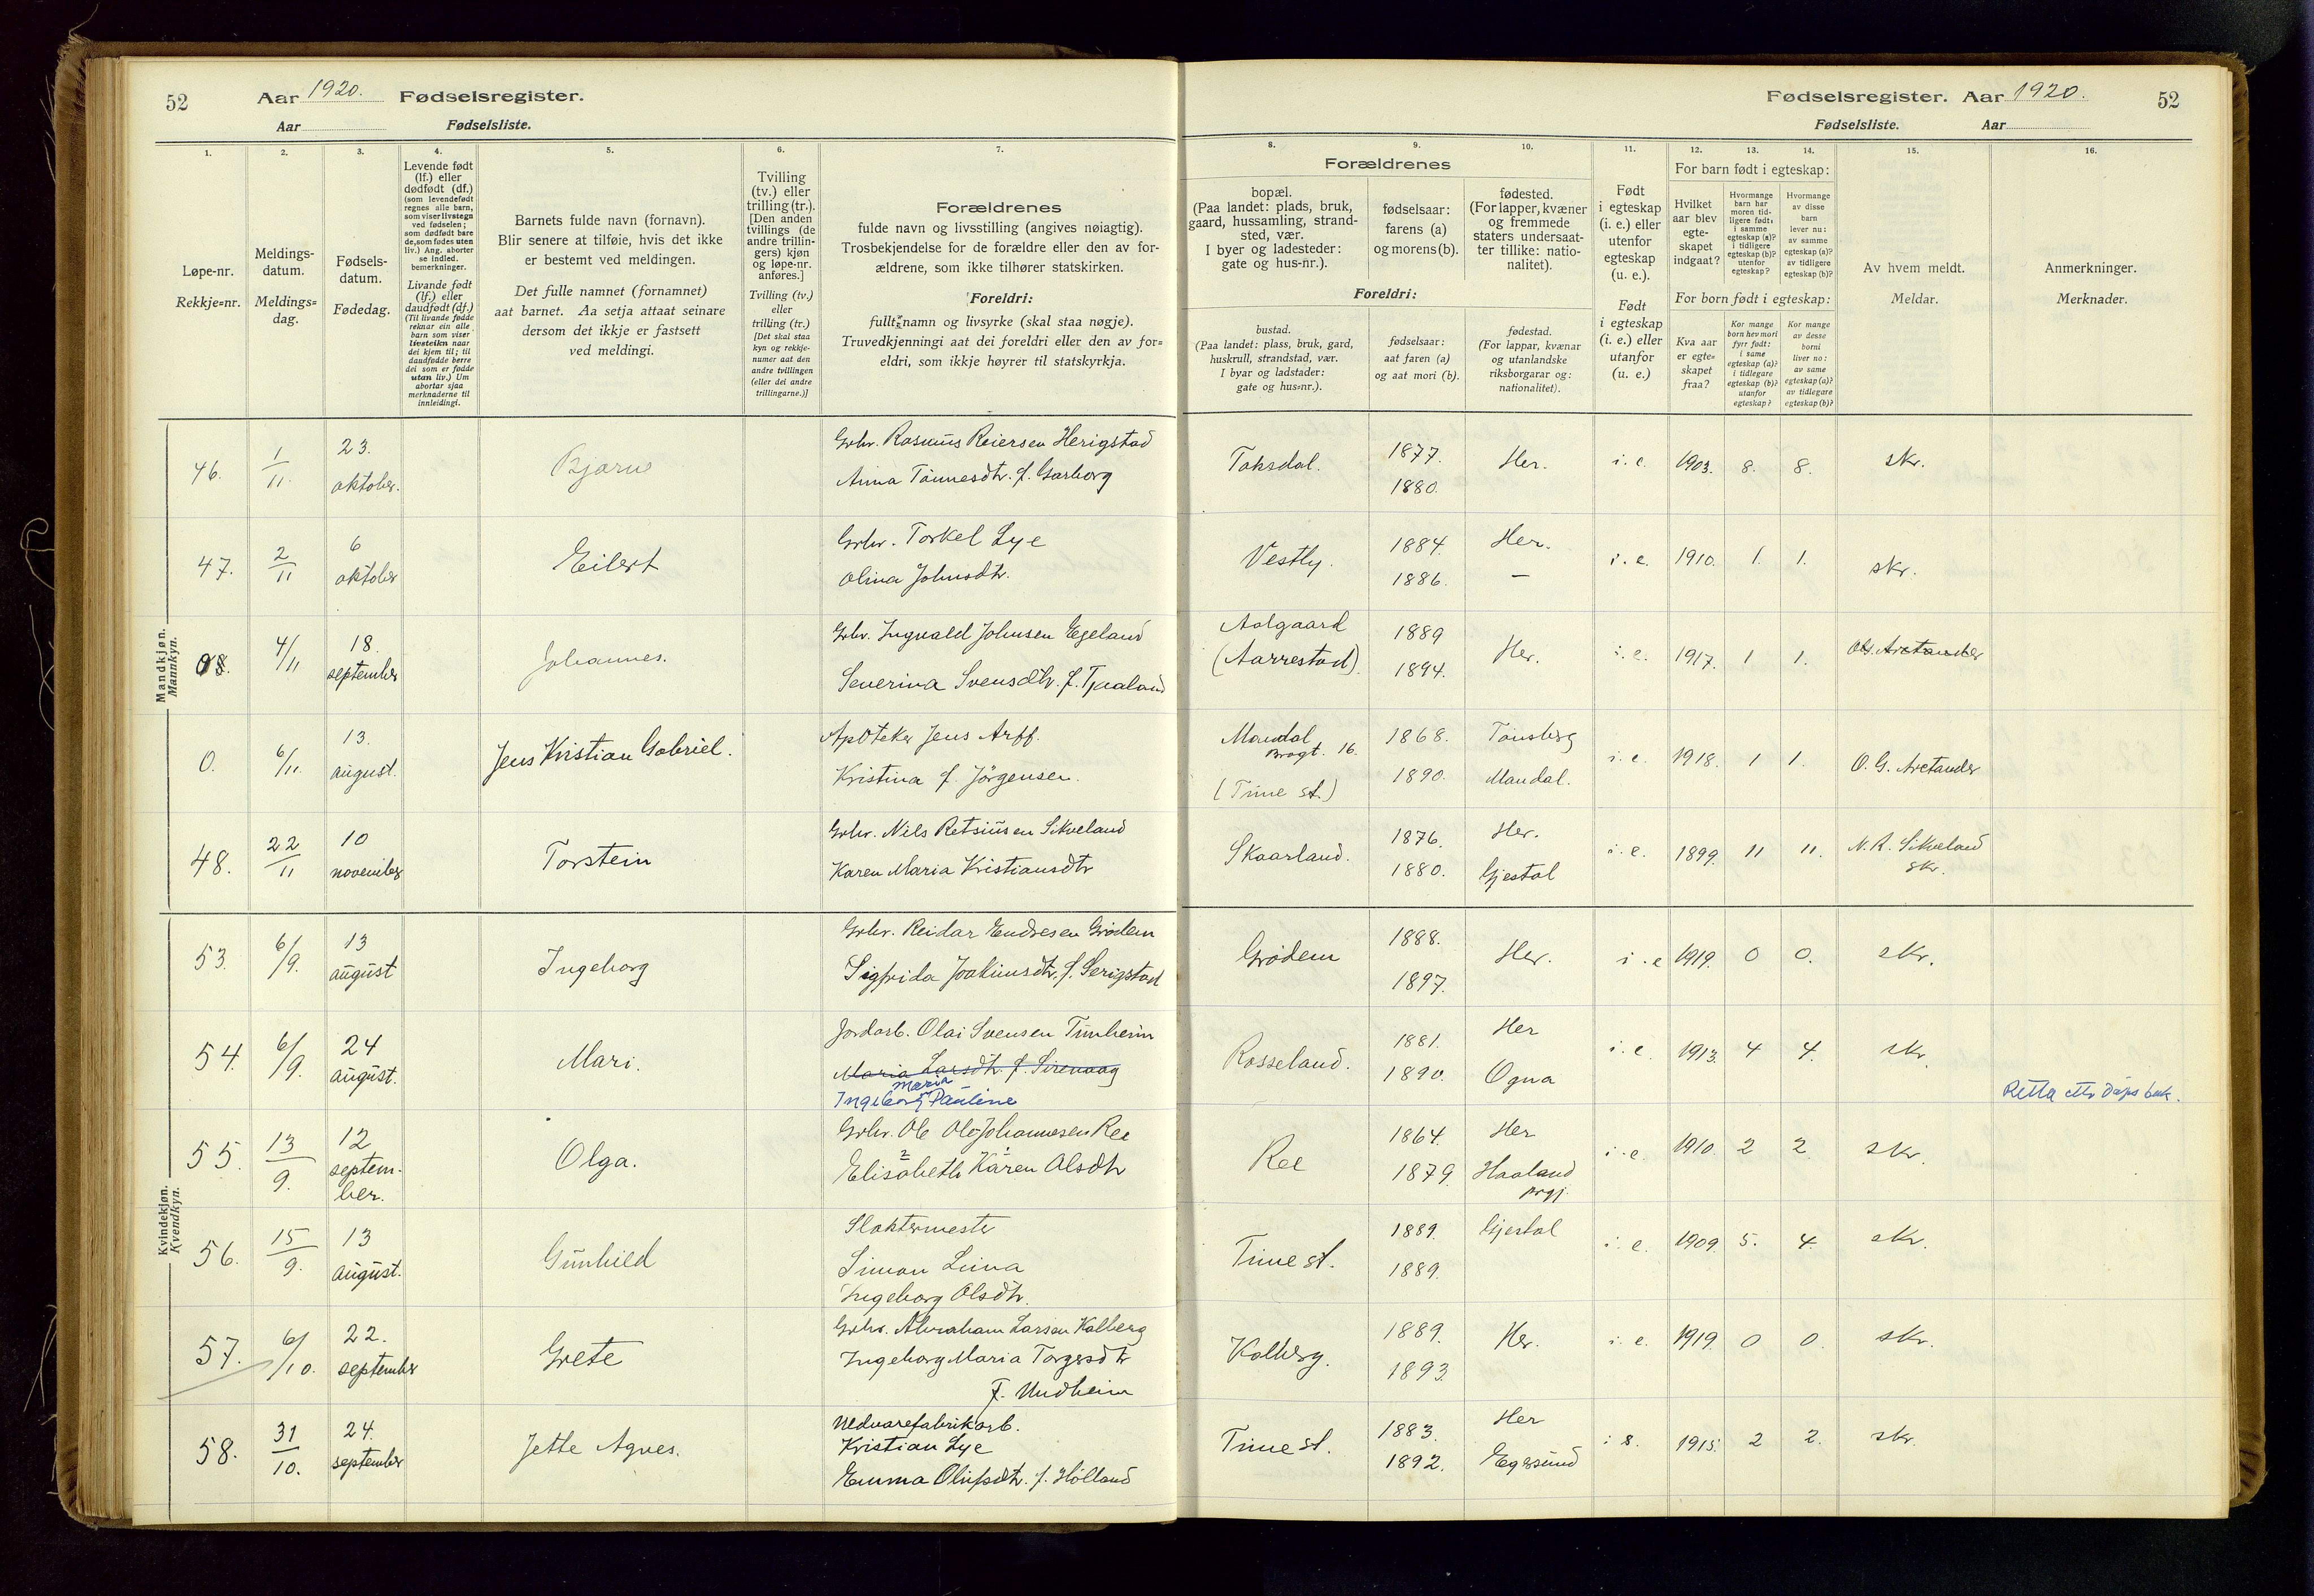 52 Aar 1920. Fødselsregister.
Aar Fødselsliste.
Fødselsregister. Aar 1920. 52
Fødselsliste. Aar
1. 2. 3. 4. 5. 6. 7. 8. 9. 10. 11. 12. 13. 14. 15. 16.
Løpe-nr.
Rekkje=nr.
Meldings-
datum.
Meldings=
dag.
Fødsels-
datum.
Fødedag.
Levende født
(lf.) eller
dødfødt (df.)
(som levendefødt
regnes alle barn,
som viser livstegn
ved fødselen;
som dødfødt bare
de, som fødes uten
liv.) Ang. aborter
se indled.
bemerkninger.
Livande født
(lf.) eller
daudfødt (df.)
(Til livande fødde
reknar ein alle
barn som viser
livsteikn naar
dei kjem til; til
daudfødde berre
dei som er fødde
utan liv.) Um
abortar sjaa
merknaderne til
innleidingi.
Barnets fulde navn (fornavn).
Blir senere at tilføie, hvis det ikke
er bestemt ved meldingen.
Det fulle namnet (fornamnet)
aat barnet. Aa setja attaat seinare
dersom det ikkje er fastsett
ved meldingi.
Tvilling
(tv.) eller
trilling (tr.).
[Den anden
tvillings (de
andre trillin-
gers) kjøn
og løpe-nr.
anføres.]
Tvilling (tv.)
eller
trilling (tr.)
[Det skal staa
kyn og rekkje-
numer aat den
andre tvillingen
(eller dei andre
trillingarne.)]
Forældrenes
fulde navn og livsstilling (angives nøiagtig).
Trosbekjendelse for de forældre eller den av for-
ældrene, som ikke tilhører statskirken.
Foreldri:
fullt namn og livsyrke (skal staa nøgje).
Truvedkjenningi aat dei foreldri eller den av for=
eldri, som ikkje høyrer til statskyrkja.
Forældrenes
bopæl.
(Paa landet: plads, bruk,
gaard, hussamling, strand-
sted, vær.
I byer og ladesteder:
gate og hus-nr.).
fødselsaar:
farens (a)
og morens (b).
fødested.
(For lapper, kvæner
og fremmede
staters undersaat-
ter tillike: natio-
nalitet).
Foreldri:
bustad.
(Paa landet: plass, bruk, gard,
huskrull, strandstad, vær.
I byar og ladstader:
gate og hus=nr.).
fødselsaar:
aat faren (a)
og aat mori (b).
fødestad.
(For lappar, kvænar
og utanlandske
riksborgarar og:
nationalitet).
Født
i egteskap
(i. e.) eller
utenfor
egteskap
(u. e.).
Født
i egteskap
(i. e.) eller
utanfor
(u. e.)
For barn født i egteskap:
Hvilket
aar blev
egte-
skapet
indgaat?
Hvormange
barn har
moren tid-
ligere født:
i samme
egteskap (a)?
i tidligere
egteskap (b)?
utenfor
egteskap?
Hvormange
av disse
barn
lever nu:
av samme
egteskap (a)?
av tidligere
egteskap (b)?
For born født i egteskap:
Kva aar
er egte=
skapet
fraa?
Kor mange
born hev mori
fyrr født:
i same
egteskap (a)?
i tidlegare
egteskap (b)?
utanfor
egteskap?
Kor mange
av desse
borni
liver no:
av same
egteskap (a)?
av tidlegare
egteskap (b)?
Av hvem meldt.
Meldar.
Anmerkninger.
Merknader.
Mandkjøn.
Mannkyn.
46. 1/11. 23. oktober. Bjarne Grbr. Rasmus Reiersen Herigstad Taksdal. 1877. Her. i. e. 1903. 8. 8. skr.
Anna Tønnesdtr. f. Garborg 1880.
47. 2/11 6 oktober Eilert Grbr. Torkel Lye Vestly. 1884. Her. i. e. 1910. 1. 1. skr.
Olina Johnsdtr. 1886. —
4/11 18. september Johannes. Grbr. Ingvald Johnsen Egeland Aalgaard 1889 Her. i. e. 1917. 1 1. O.G. Arctander
Severina Svensdtr. f. Tjaaland (Aarrestad). 1894.
0. 6/11. 13. august. Jens Kristian Gabriel. Apoteker Jens Arff. Mandal 1868. Tønsberg i. e. 1918. 1 1. O. G. Arctander
Brogt. 16.
Kristina f. Jörgensen. (Time st.) 1890. Mandal.
48. 22/11 10 november Torstein Grbr. Nils Retsiusen Sikveland Skaarland. 1876. Her. i. e. 1899. 11 11. N. R. Sikveland
Karen Maria Kristiansdtr 1880. Gjestal skr.
Kvindekjøn.
Kvendkyn.
53. 6/9. 13 august Ingeborg Grbr. Reidar Endresen Grødem Grödem 1888. Her. i. e 1919. 0 0. skr.
Sigfrida Joakimsdtr. f. Serigstad 1897.
54. 6/9. 24 august. Mari. Jordarb. Olai Svensen Tunheim Rosseland. 1881. Her i. e. 1913. 4 4. skr.
Maria Larsdtr. f. Sirevaag 1890. Ogna
Maria
Ingeborg Pauline Retta ettr dåps bok.
55. 13/9. 12 september. Olga. Grbr. Ole Olo Johannesen Ree Ree 1864. Her i. e. 1910. 2 2. skr.
Elisabeth Karen Olsdtr 1879. Haaland prgj.
56. 15/9. 13 august. Gunhild Slaktermester Time st. 1889. Gjestal i. e. 1909. 5. 4. skr.
Simon Lima 1889.
Ingeborg Olsdtr.
57. 6/10. 22. september Grete Grbr. Abraham Larsen Kalberg Kalberg. 1889. Her. i. e. 1919. 0 0. skr.
Ingeborg Maria Torgersdtr 1893.
f. Undheim
58. 31/10. 24. september Jette Agnes. Uldvarefabrikarb. Time st. 1883. Her i e. 1915. 2 2. skr.
Kristian Lye 1892. Egersund
Emma Olufsdtr. f. Hölland